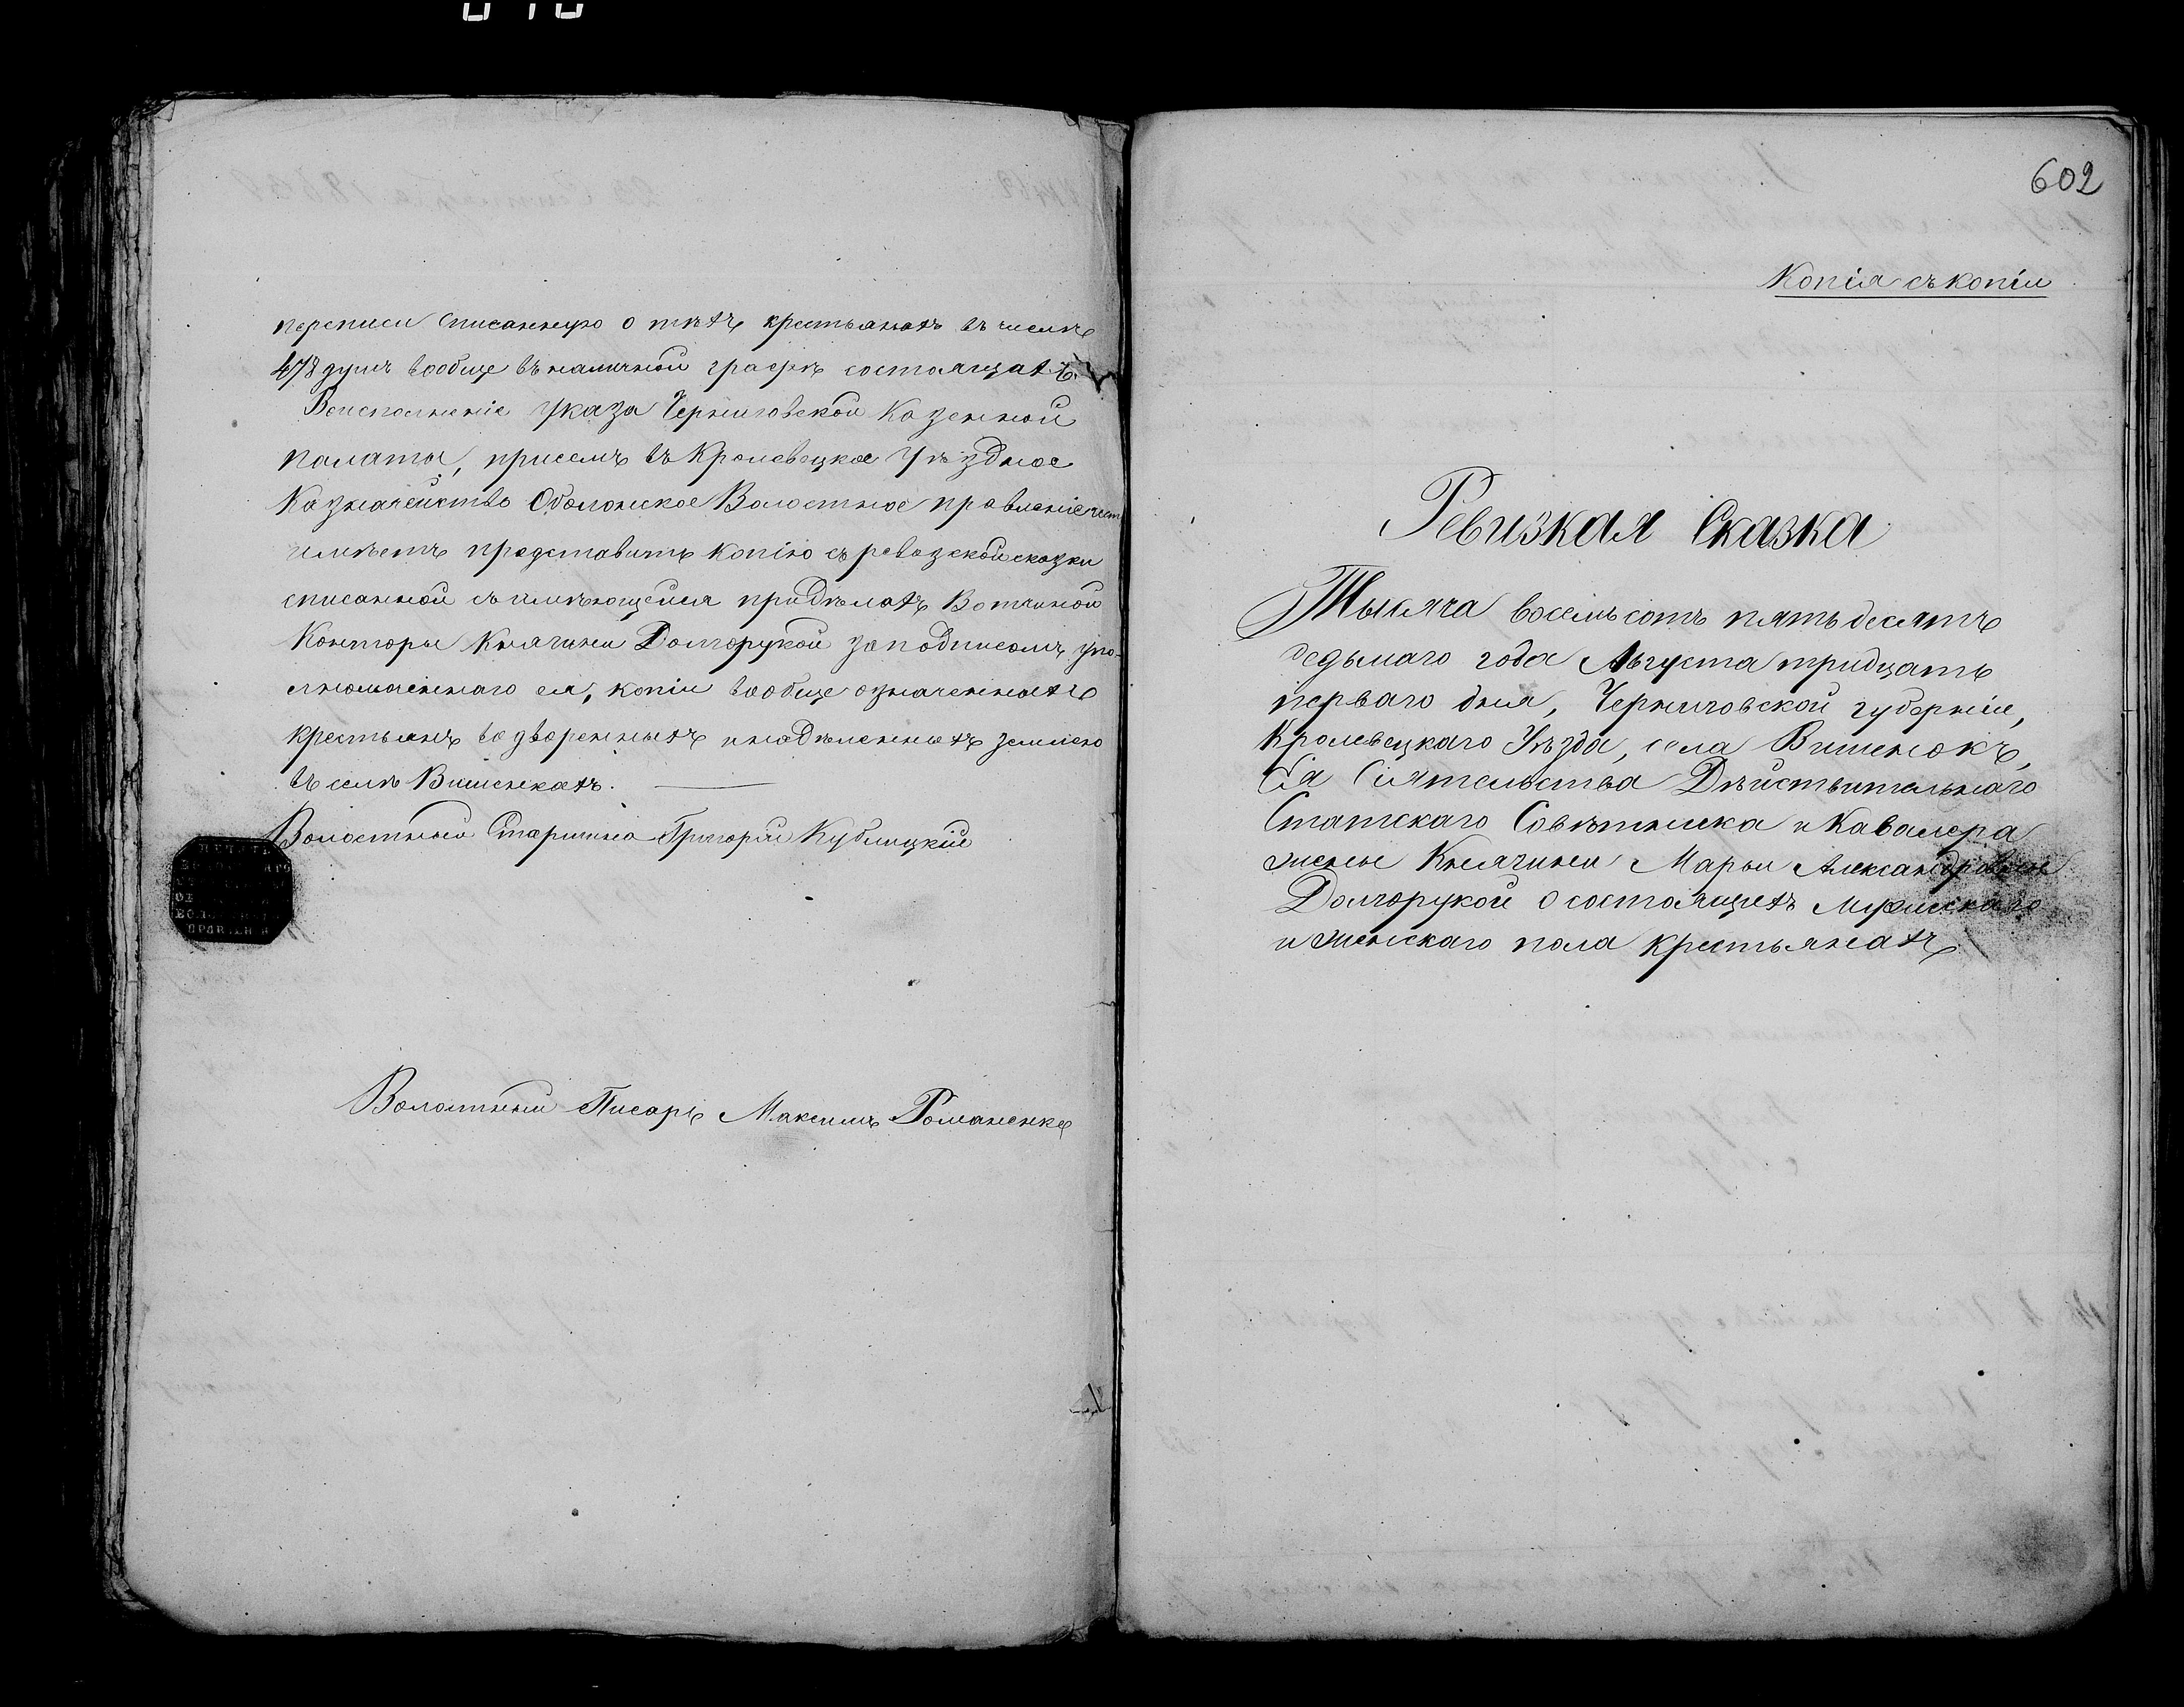 переписи списанную о тѣхъ крестьянахъ въ числѣ
478 душъ вообще въ наличной графѣ состоящихъ.
Во исполненіе указа Черниговской Казенной
палаты, при семъ въ Кролевецкое Уѣздное
Казначейство Оболонское Волостное правленіе честь
имѣетъ представить копію съ ревизской сказки
списанной съ имѣющейся при дѣлахъ Вотчиной
Конторы Княгини Долгорукой за подписомъ упо-
лномоченнаго ея, копіи вообще означенныхъ
крестьянъ водворенныхъ и надѣленныхъ землею
въ селѣ Вишенкахъ.
Волостный Старшина Григорій Кублицкій
ПЕЧАТЬ
ВОЛО
ПРАВЛЕН
Волостный Писарь Максимъ Романенко
602
Копія съ копіи
Ревизкая Сказка
Тысяча восемьсотъ пятьдесятъ
седьмаго года Августа тридцать
перваго дня, Черниговской губерніи,
Кролевецкаго Уѣзда, села Вишенокъ,
Ея Сіятельства Дѣйствительнаго
Статскаго Совѣтника и Кавалера
жены Княгини Марьи Александровны
Долгорукой о состоящихъ Мужискаго
и женскаго пола крестьянахъ